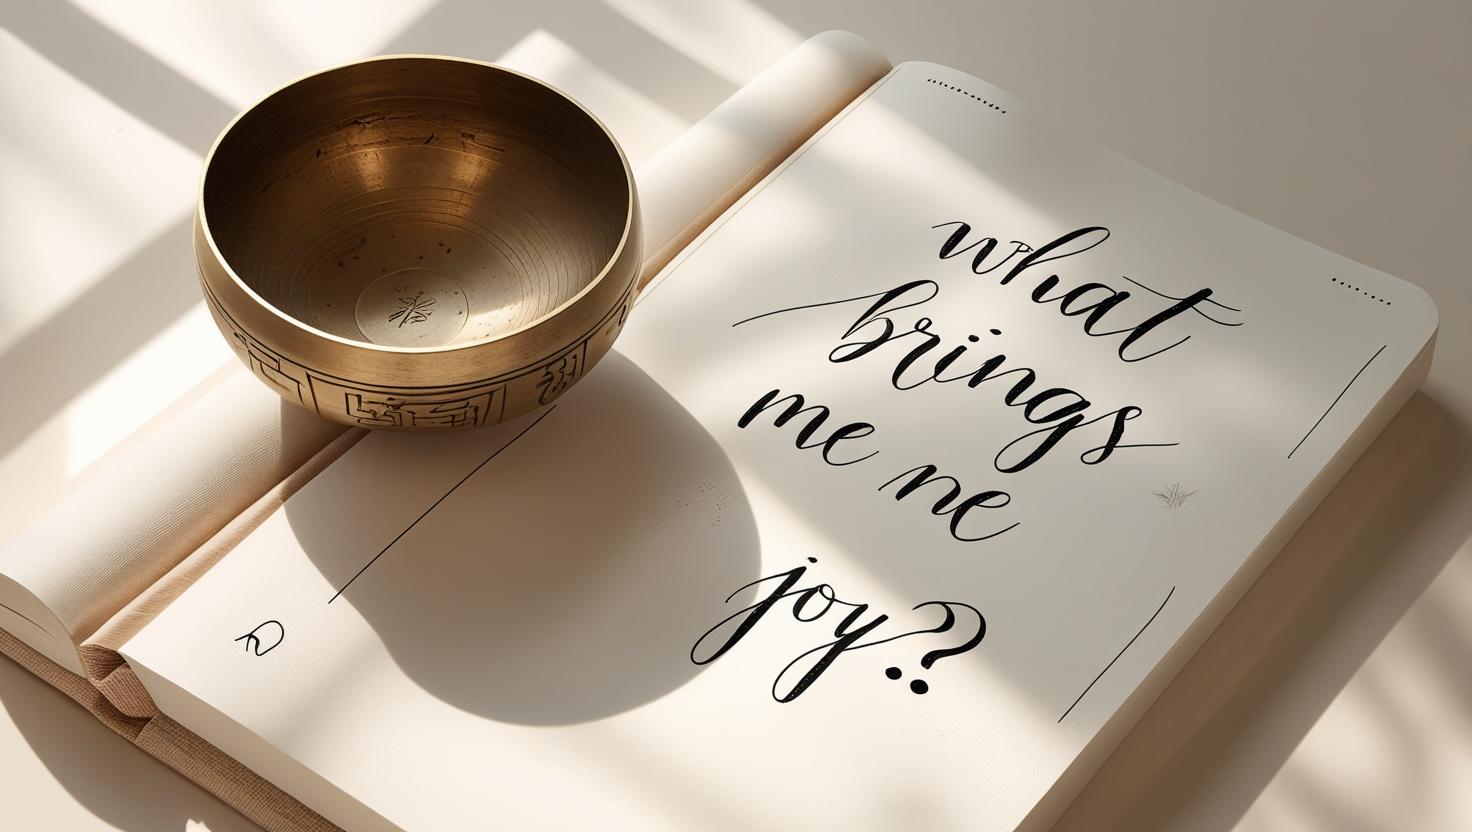 what
brings
me ne
joy?